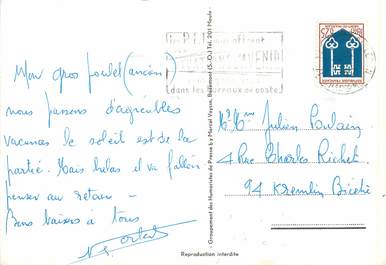 Mon gros poulet (ancien)
nous passons d'agréables
vacances le soleil est de la
partie. Mais hélas il va falloir
penser au retour -
Bons baisers à tous
Mr Mme Julien Poulain
4 Rue Charles Richet
94 Kremlin Bicêtre
dans les bureaux de poste
Groupement des Humoristes de France by Marcel Veyrié,
Reproduction interdite